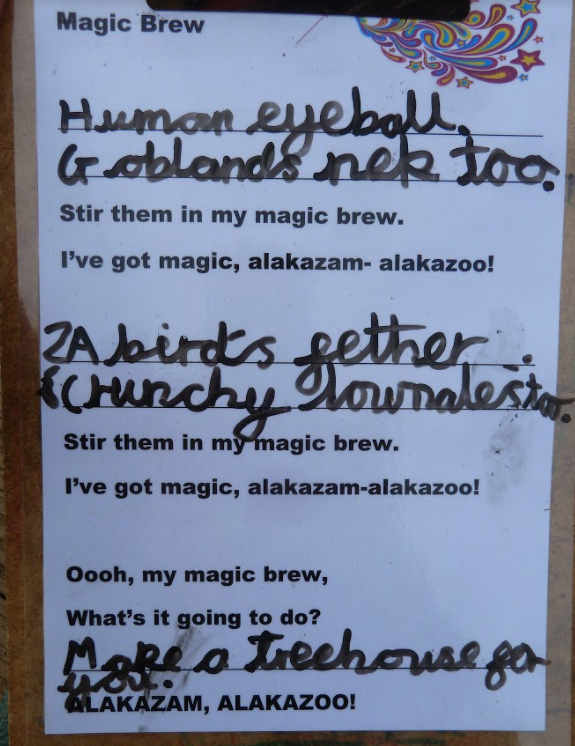 Magic Brew
Human eyeball.
Goblands nek too.
Stir them in my magic brew.
I've got magic, alakazam- alakazoo!
A birds fether .
Crunchy too.
Stir them in my magic brew.
I've got magic, alakazam-alakazoo!
Oooh, my magic brew,
What's it going to do?
Make a treehouse for
you.
ALAKAZAM, ALAKAZOO!